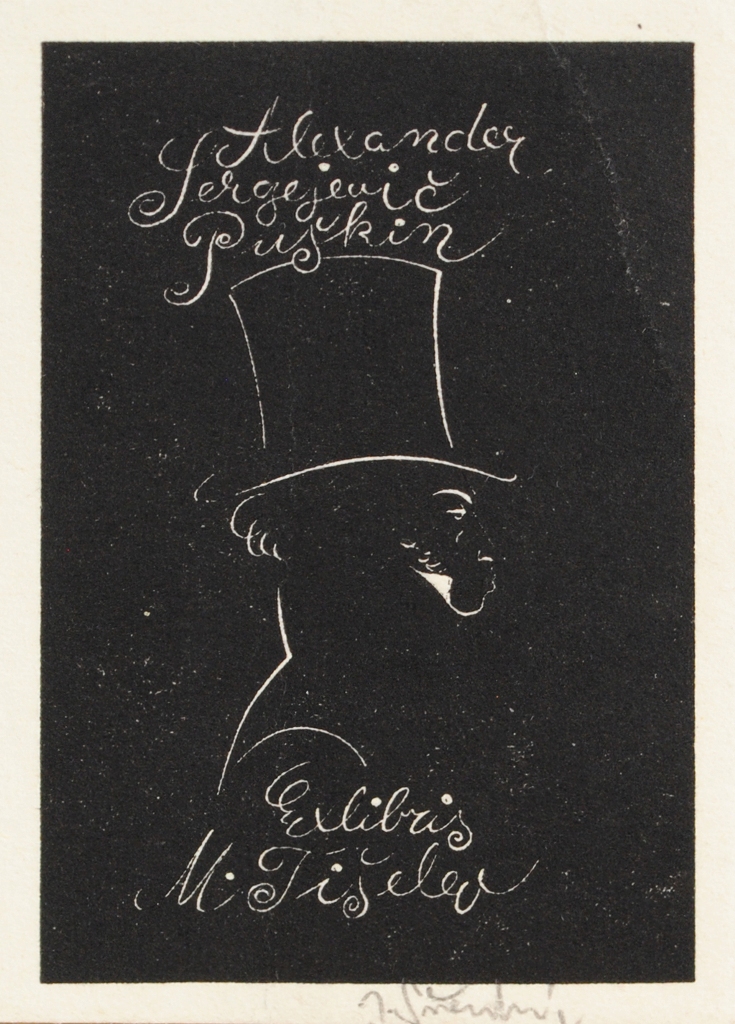 Alexander
Sergejevič
Puškin
Exlibris
M. Tišelev